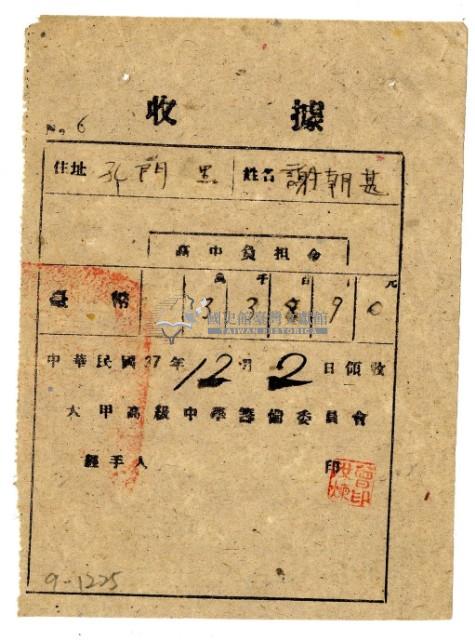 收據
No. 6
住址 孔門里 姓名 謝朝甚
高中負担金
萬千百元
臺幣 33890
國史館臺灣文獻館
TAIWAN HISTORICA
中華民國37年12月2日領收
大甲高級中學籌備委員會
經手人 印
9-1225